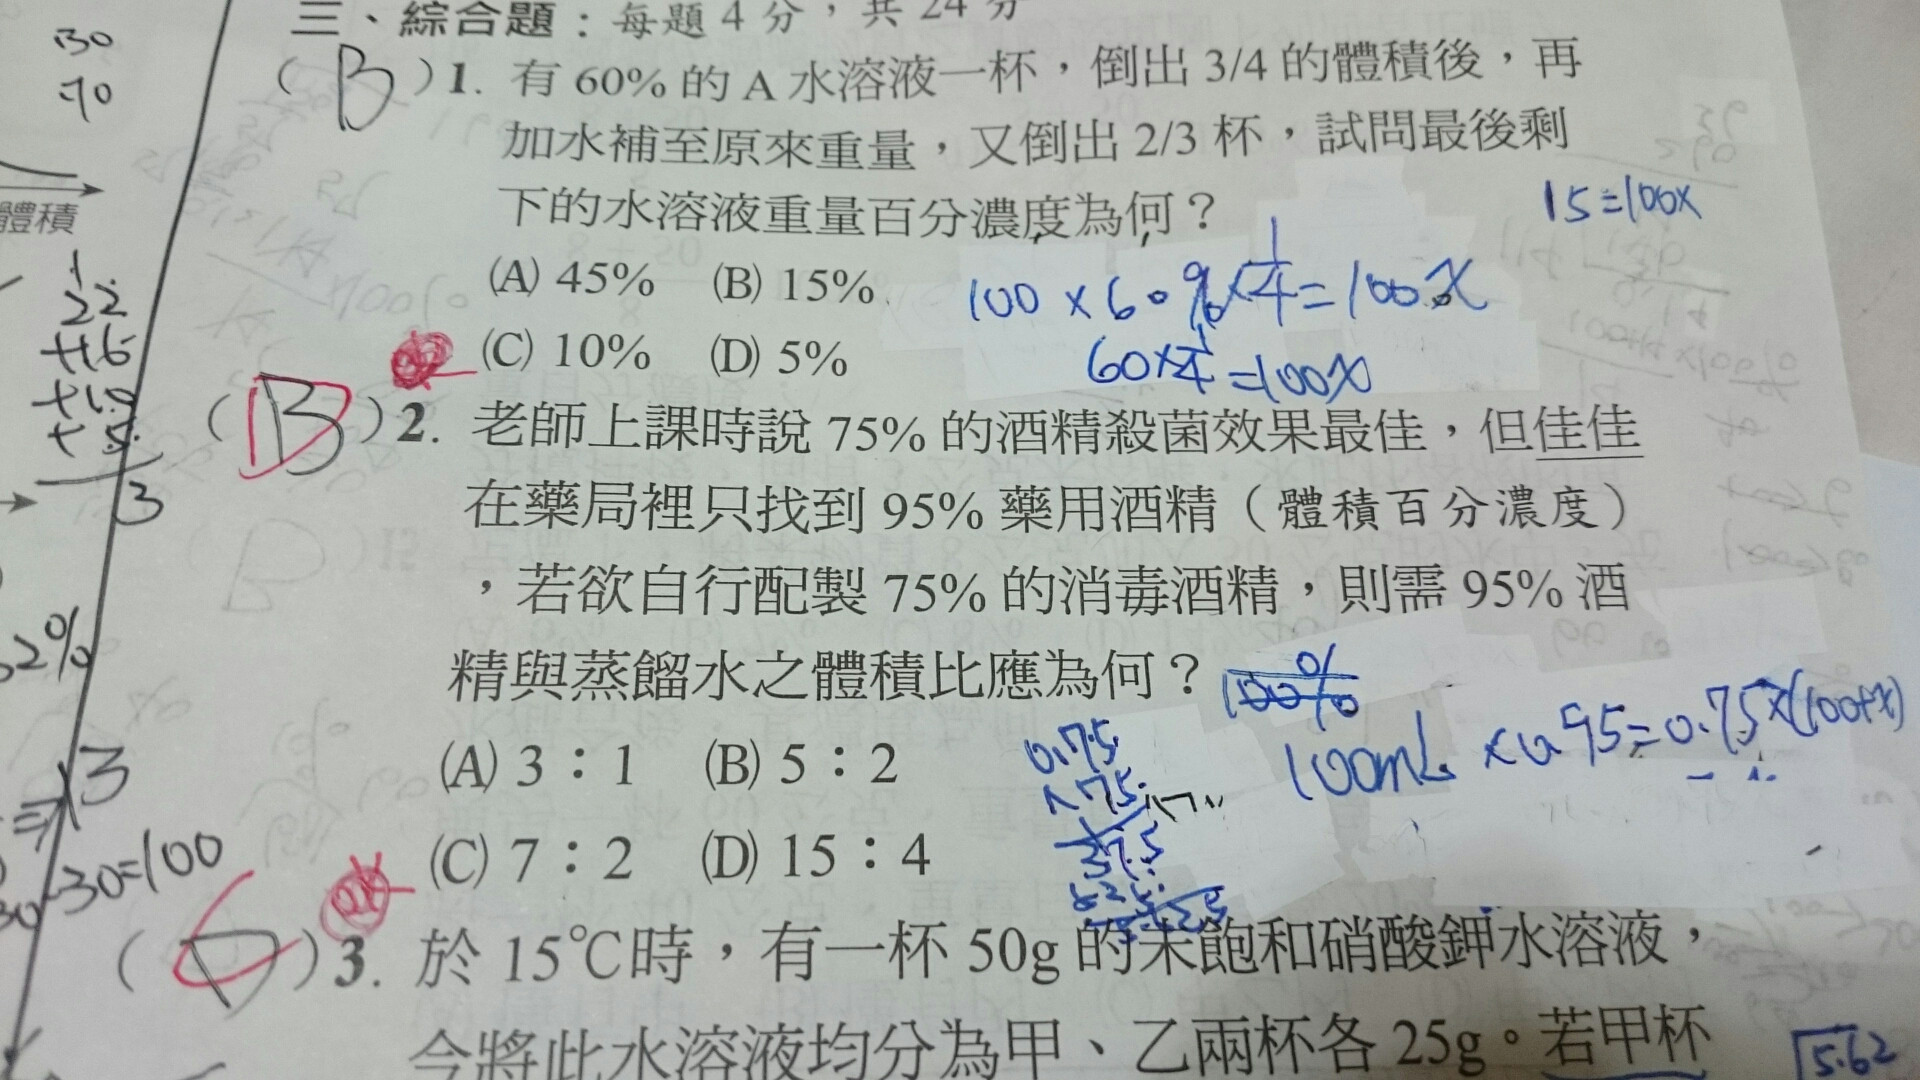 三、綜合題：每題 4 分，共 24 分
( B ) 1. 有 60% 的 A 水溶液一杯，倒出 3/4 的體積後，再
加水補至原來重量，又倒出 2/3 杯，試問最後剩
下的水溶液重量百分濃度為何？
15=100x
(A) 45% (B) 15%
100×60%×1/4=100x
(C) 10% (D) 5%
60×1/4=100x
( B ) 2. 老師上課時說 75% 的酒精殺菌效果最佳，但佳佳
在藥局裡只找到 95% 藥用酒精（體積百分濃度）
，若欲自行配製 75% 的消毒酒精，則需 95% 酒
精與蒸餾水之體積比應為何？
(A) 3：1 (B) 5：2
100mL×0.95=0.75×(100+x)
(C) 7：2 (D) 15：4
3. 於 15℃時，有一杯 50g 的未飽和硝酸鉀水溶液，
今將此水溶液均分為甲、乙兩杯各 25g。若甲杯
5.62
130
70
體積
22
+16
13
-30=100